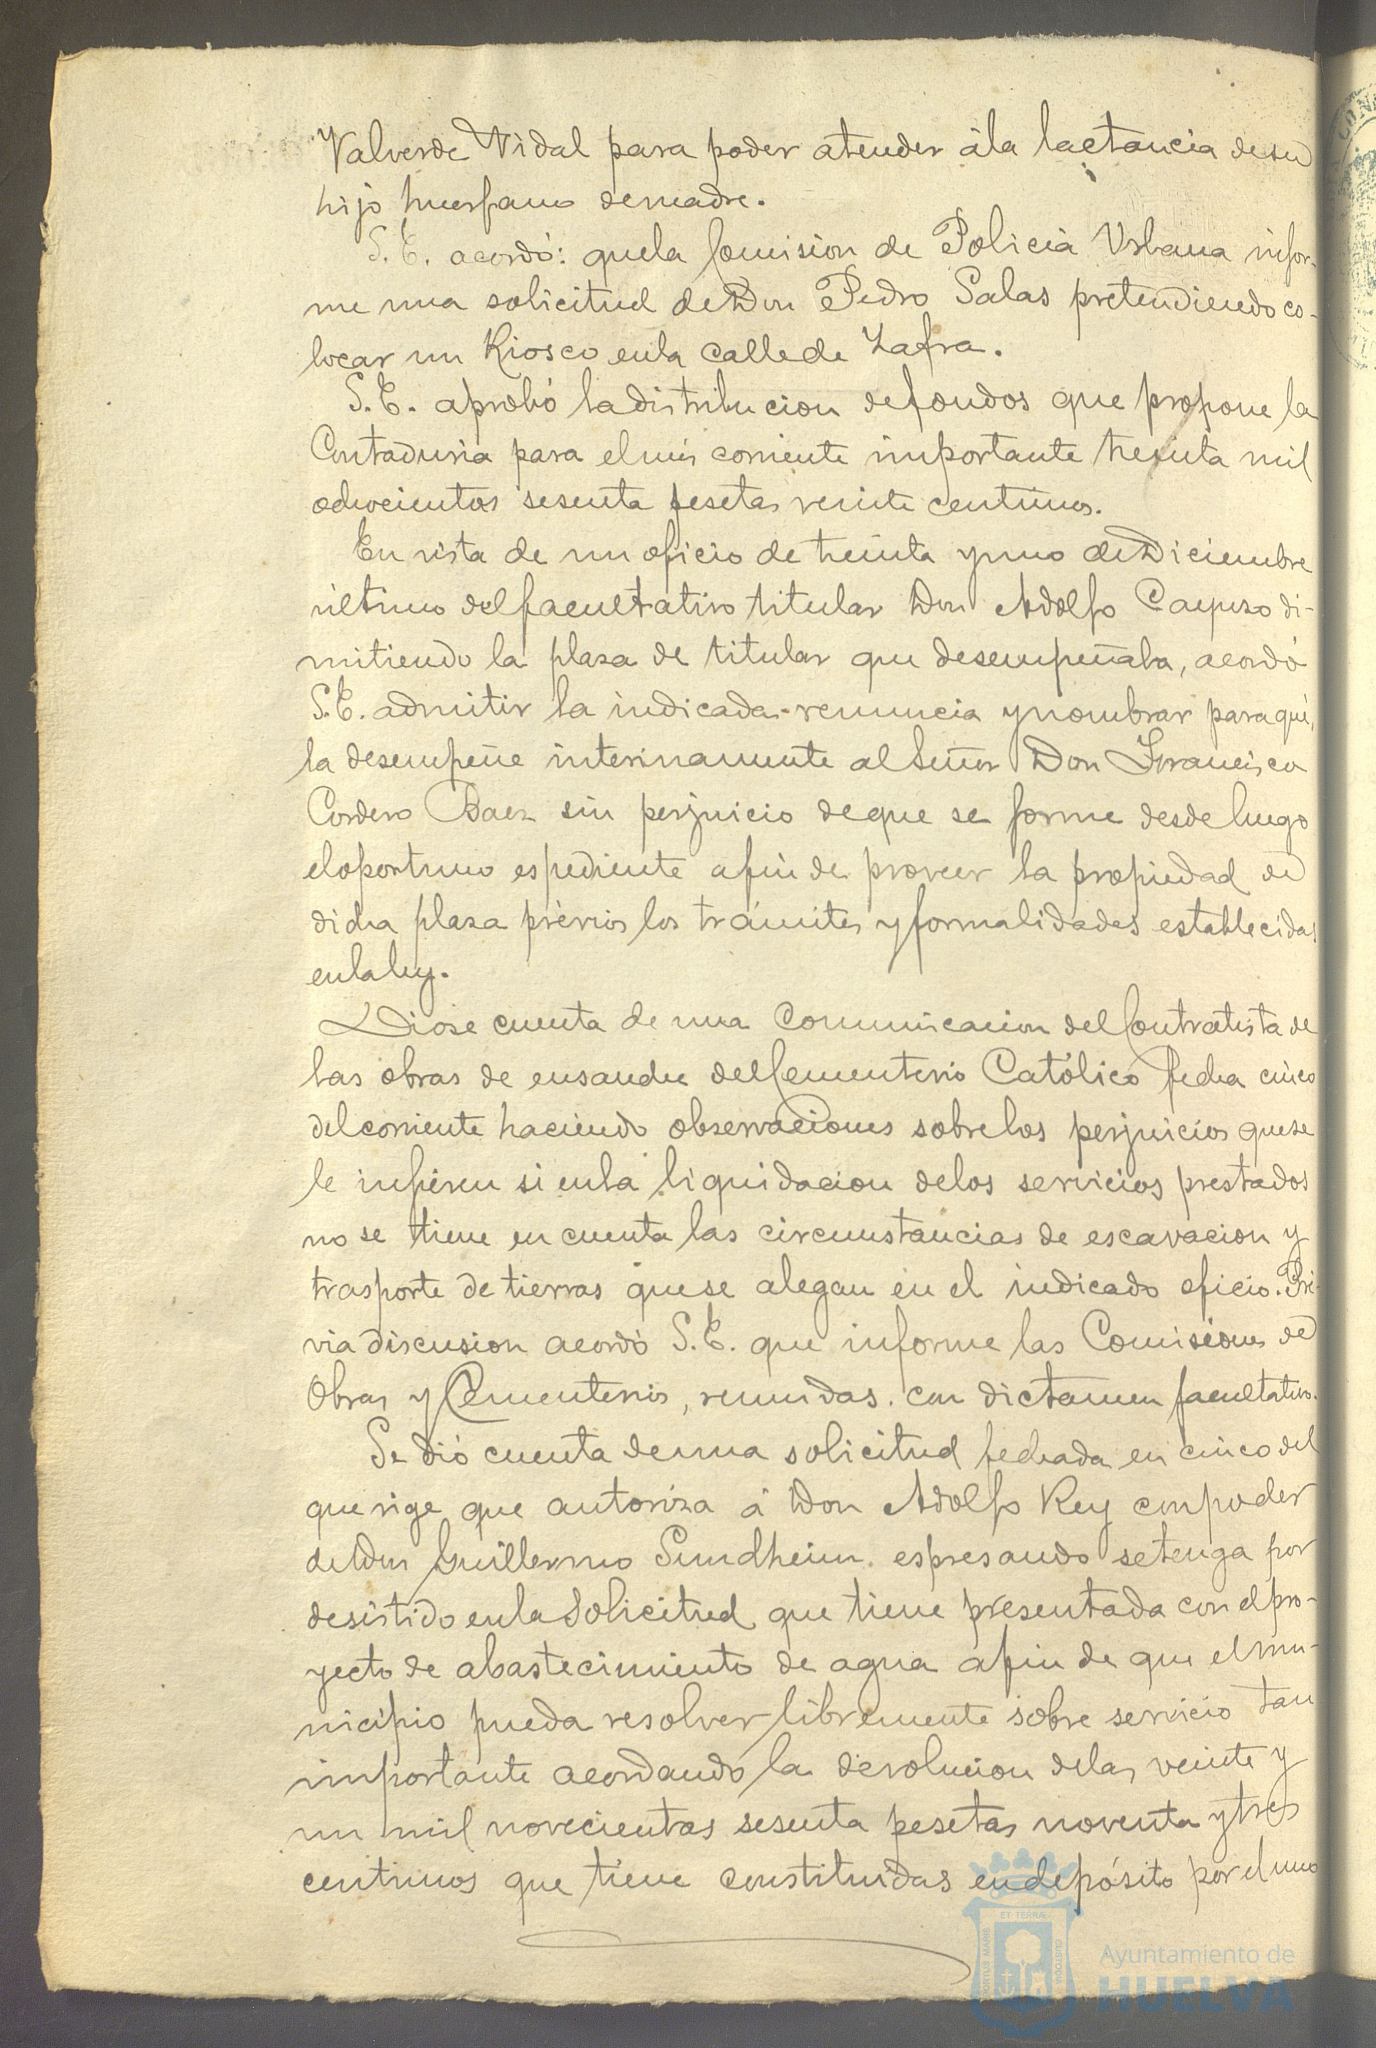 Valverde Vidal para poder atender á la lactancia de su
hijo huerfano de madre.
S. E. acordó: que la Comision de Policia Urbana infor-
me una solicitud de Don Pedro Salas pretendiendo co-
locar un Kiosco en la calle de Zafra.
S. E. aprobó la distribucion de fondos que propone la
Contaduria para el mes corriente importante treinta mil
ochocientas sesenta pesetas veinte centimos.
En vista de un oficio de treinta y uno de Diciembre
último del facultativo titular Don Adolfo di-
mitiendo la plaza de titular que desempeñaba, acordó
S. E. admitir la indicada renuncia y nombrar para que
la desempeñe interinamente al Señor Don Francisco
Cordero Baez sin perjuicio de que se forme desde luego
el oportuno espediente a fin de proveer la propiedad de
dicha plaza prévios los trámites y formalidades establecidas
en la ley.
Diose cuenta de una comunicacion del Contratista de
las obras de ensanche del Cementerio Católico fecha cinco
del corriente haciendo observaciones sobre los perjuicios que se
le infieren si en la liquidacion de los servicios prestados
no se tiene en cuenta las circunstancias de escavacion y
trasporte de tierras que se alegan en el indicado oficio. Pré-
via discusion acordó S. E. que informe las Comisiones de
Obras y Cementerios, reunidas con dictamen facultativo.
Se dió cuenta de una solicitud fechada en cinco del
que rige que autoriza á Don Adolfo Rey con poder
de Don Guillermo Sundheim espresando se tenga por
desistido en la solicitud que tiene presentada con el pro-
yecto de abastecimiento de agua a fin de que el mu-
nicipio pueda resolver libremente sobre servicio tan
importante acordando la devolucion de las veinte y
un mil novecientas sesenta pesetas noventa y tres
centimos que tiene constituidas en depósito por el uno
Ayuntamiento de
HUELVA